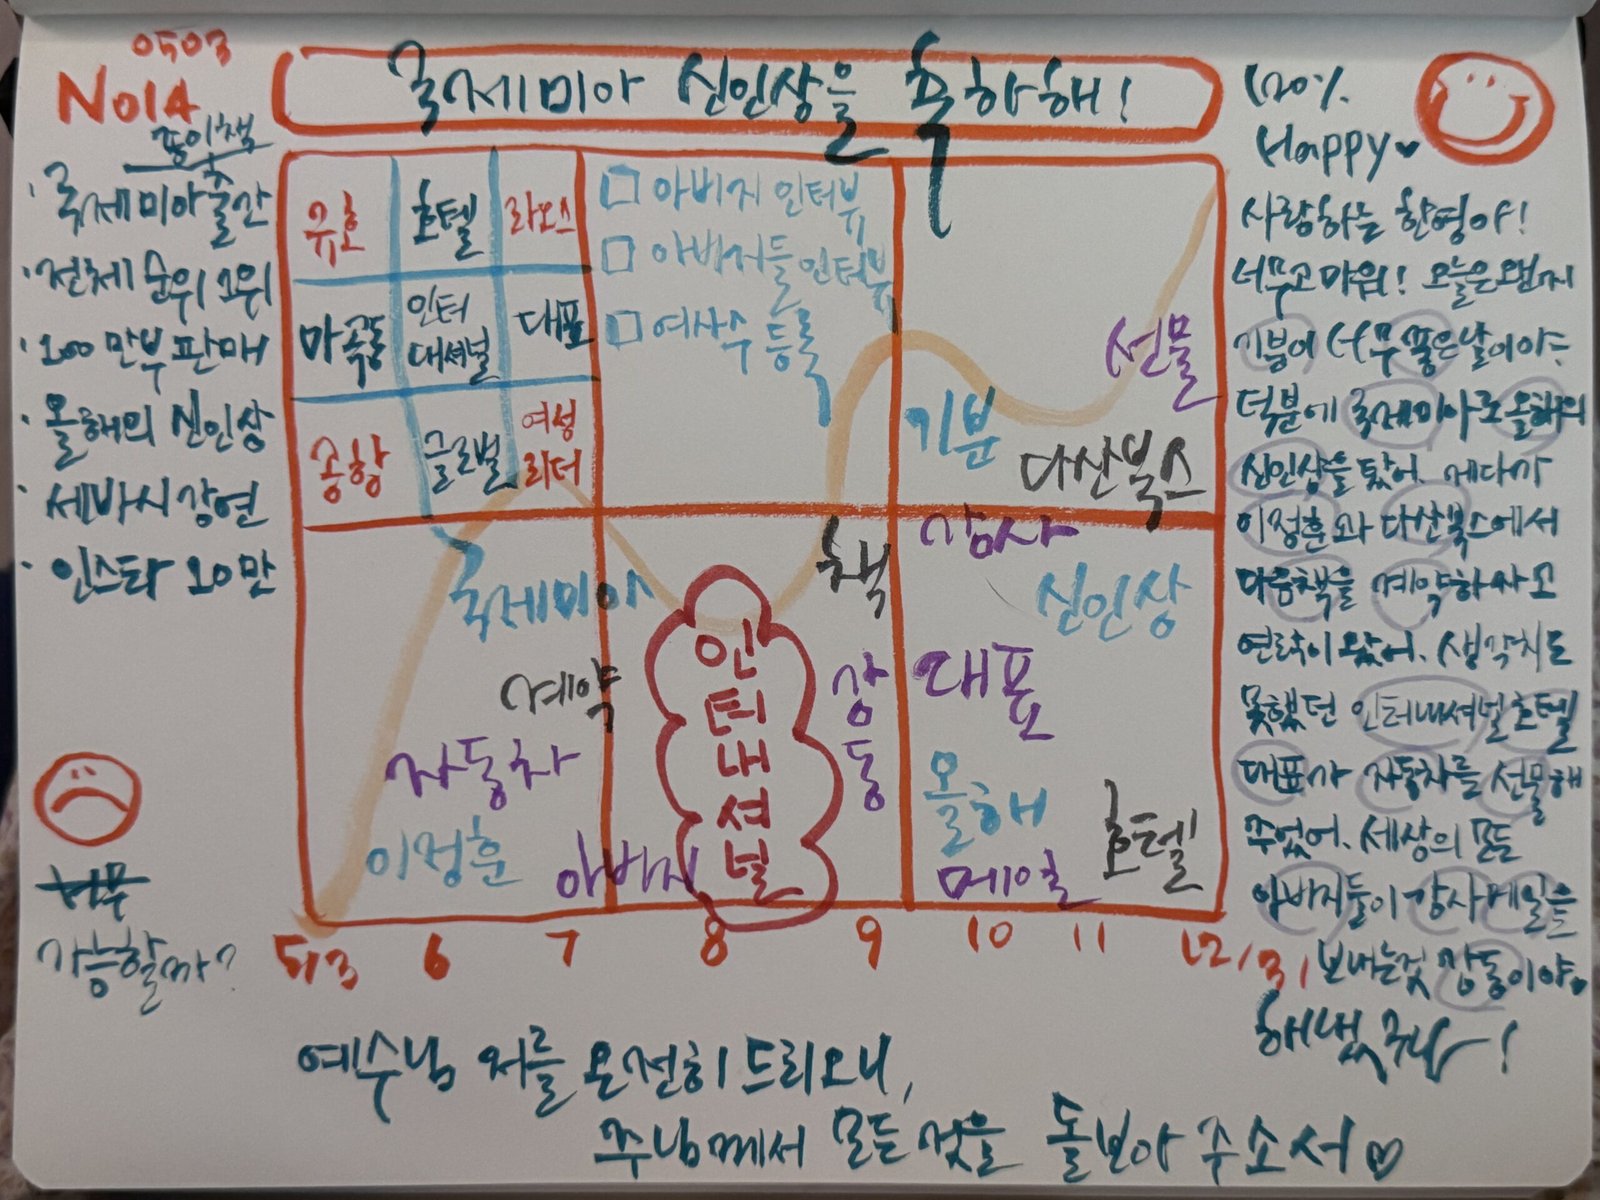 0503
No14
종이책
국제미아 신인상을 축하해!
· 국제미아 출간
· 전체 순위 1위
· 100만부 판매
· 올해의 신인상
· 세바시 강연
· 인스타 10만
너무
가능할까?
유호 호텔 라오스
마곡동 인터내셔널 대표
공항 글로벌 여성리더
□ 아버지 인터뷰
□ 아버지들 인터뷰
□ 여사수 등록
선물
기분
다산북스
국제미아
계약
자동차
이정훈
아버지
인터내셔널
책
감동
감사
신인상
대표
올해
메일
호텔
5/3 6 7 8 9 10 11 12/31
120%
Happy♥
사랑하는 한영아!
너무 고마워! 오늘은 왠지
기분이 너무 좋은 날이야~
덕분에 국제미아로 올해의
신인상을 탔어. 게다가
이정훈과 다산북스에서
다음 책을 계약하자고
연락이 왔어. 생각치도
못했던 인터내셔널 호텔
대표가 자동차를 선물해
주었어. 세상의 모든
아버지들이 감사메일을
보내는 것 감동이야♥
해냈구나!
예수님 저를 온전히 드리오니,
주님께서 모든 것을 돌보아 주소서♡